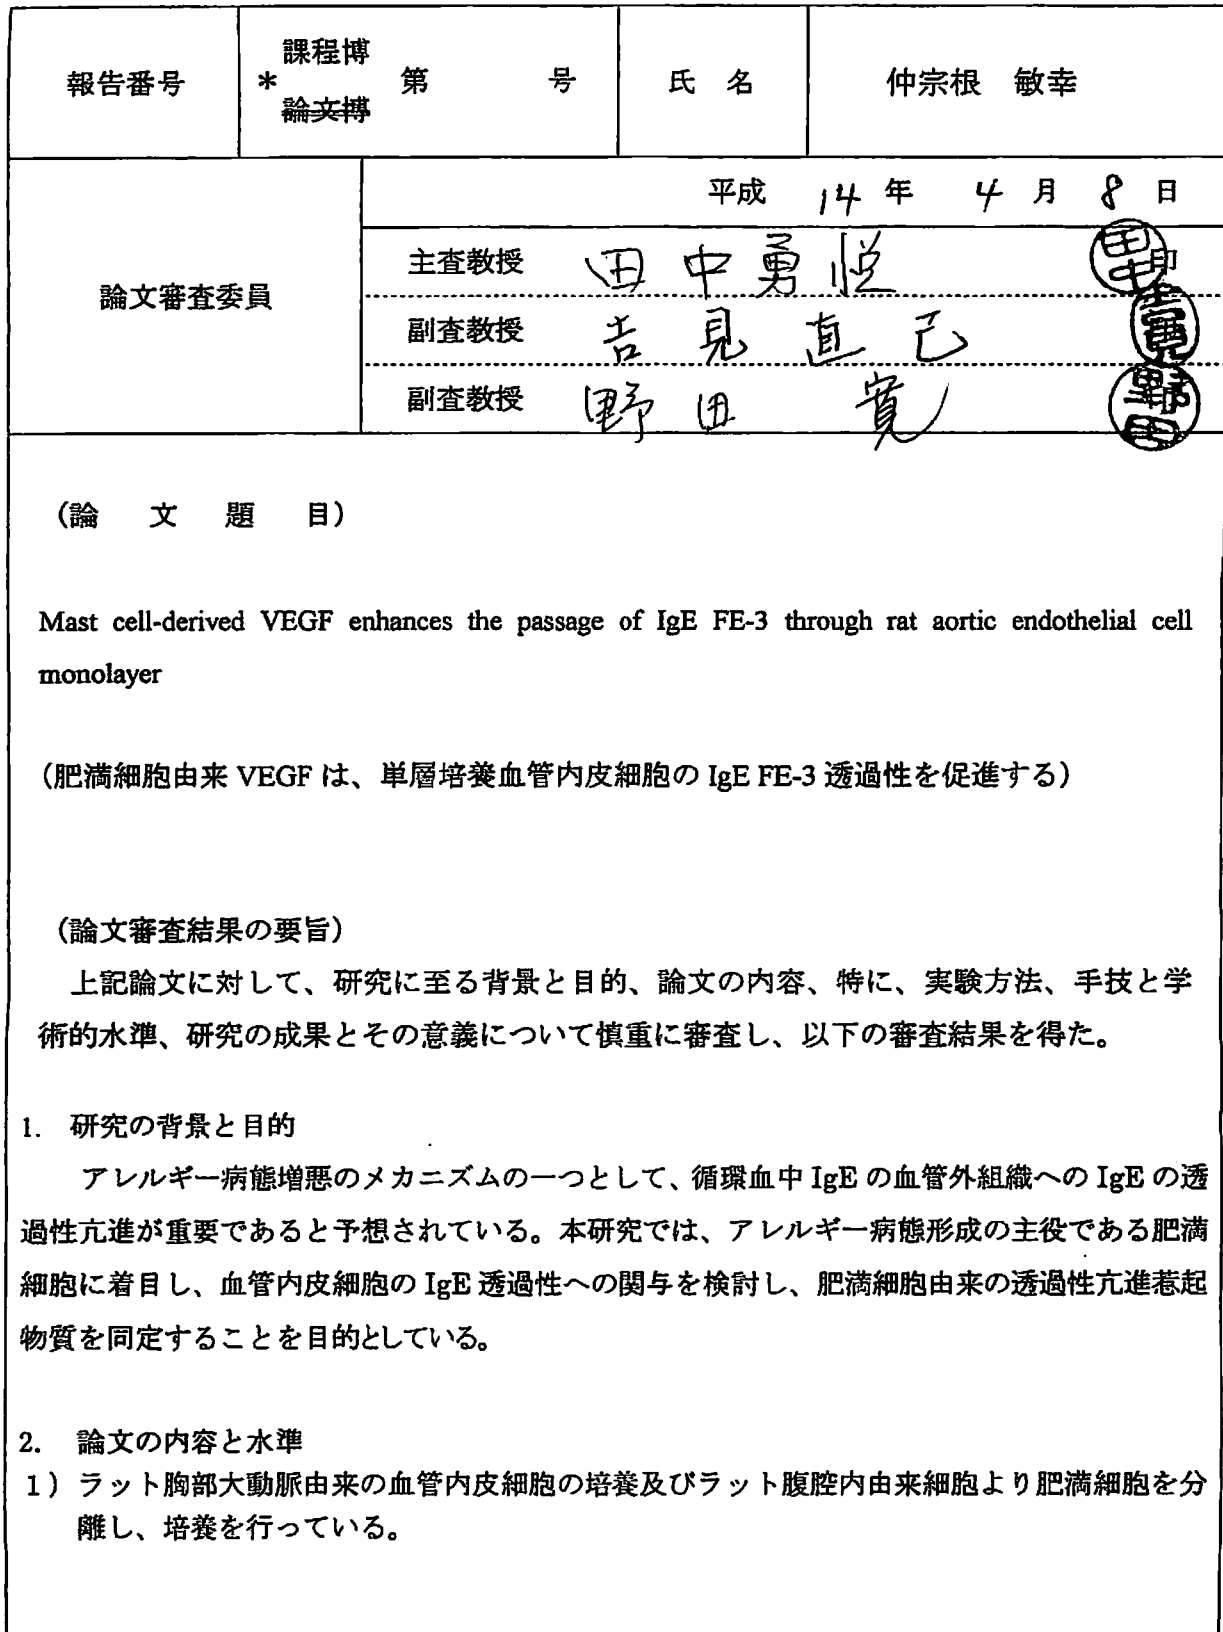 報告番号
課程博
* 第 号
論文博
氏 名
仲宗根 敏幸
論文審査委員
平成 14 年 4 月 8 日
主査教授 田中勇悦 印
副査教授 吉見直己
副査教授 野田 寛
(論 文 題 目)
Mast cell-derived VEGF enhances the passage of IgE FE-3 through rat aortic endothelial cell
monolayer
(肥満細胞由来 VEGF は、単層培養血管内皮細胞の IgE FE-3 透過性を促進する)
(論文審査結果の要旨)
上記論文に対して、研究に至る背景と目的、論文の内容、特に、実験方法、手技と学
術的水準、研究の成果とその意義について慎重に審査し、以下の審査結果を得た。
1. 研究の背景と目的
アレルギー病態増悪のメカニズムの一つとして、循環血中 IgE の血管外組織への IgE の透
過性亢進が重要であると予想されている。本研究では、アレルギー病態形成の主役である肥満
細胞に着目し、血管内皮細胞の IgE 透過性への関与を検討し、肥満細胞由来の透過性亢進惹起
物質を同定することを目的としている。
2. 論文の内容と水準
1) ラット胸部大動脈由来の血管内皮細胞の培養及びラット腹腔内由来細胞より肥満細胞を分
離し、培養を行っている。